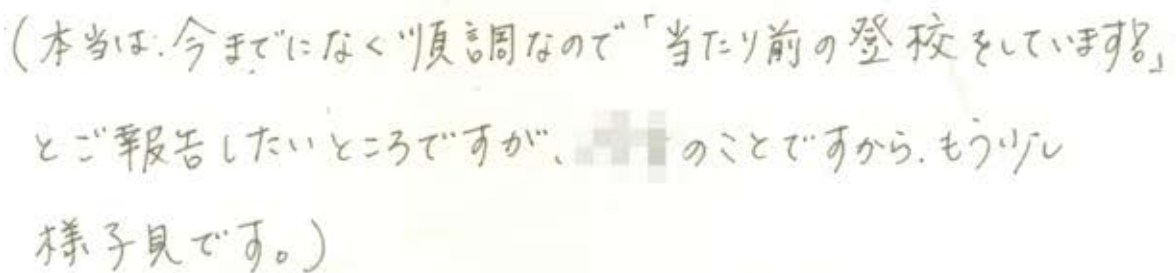 (本当は、今までになく順調なので「当たり前の登校をしています。」
とご報告したいところですが、のことですから、もう少し
様子見です。)